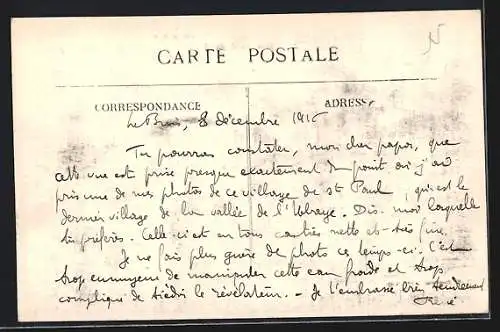 CARTE POSTALE
CORRESPONDANCE ADRESSE
8 décembre 191
Tu pourras constater, mon cher papa, que
cette vue est prise presque exactement du point où j'ai
pris une de mes photos de ce village de St Paul, qui est le
dernier village de la vallée de l'Ubaye. Dis-moi laquelle
tu préfères. Celle-ci est en tous cas très nette et très fine.
Je ne fais plus guère de photo ce temps-ci. C'est
trop ennuyeux de manipuler cette eau froide et trop
compliqué de tiédir le révélateur. - Je t'embrasse bien tendrement
René